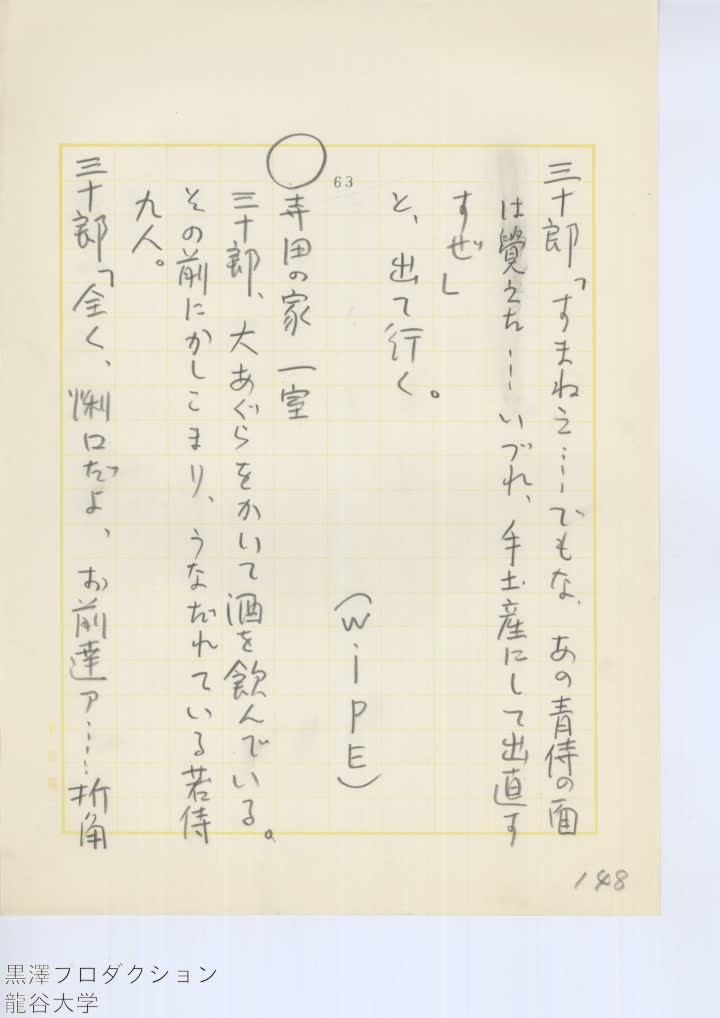 三十郎「すまねえ……でもな、あの青侍の面
は覺えた……いづれ、手土産にして出直す
すぜ」
と、出て行く。
(WIPE)
63
○
寺田の家 一室
三十郎、大あぐらをかいて酒を飲んでいる。
その前にかしこまり、うなだれている若侍
九人。
三十郎「全く、悧口だよ、お前達ァ……折角
148
黒澤プロダクション
龍谷大学